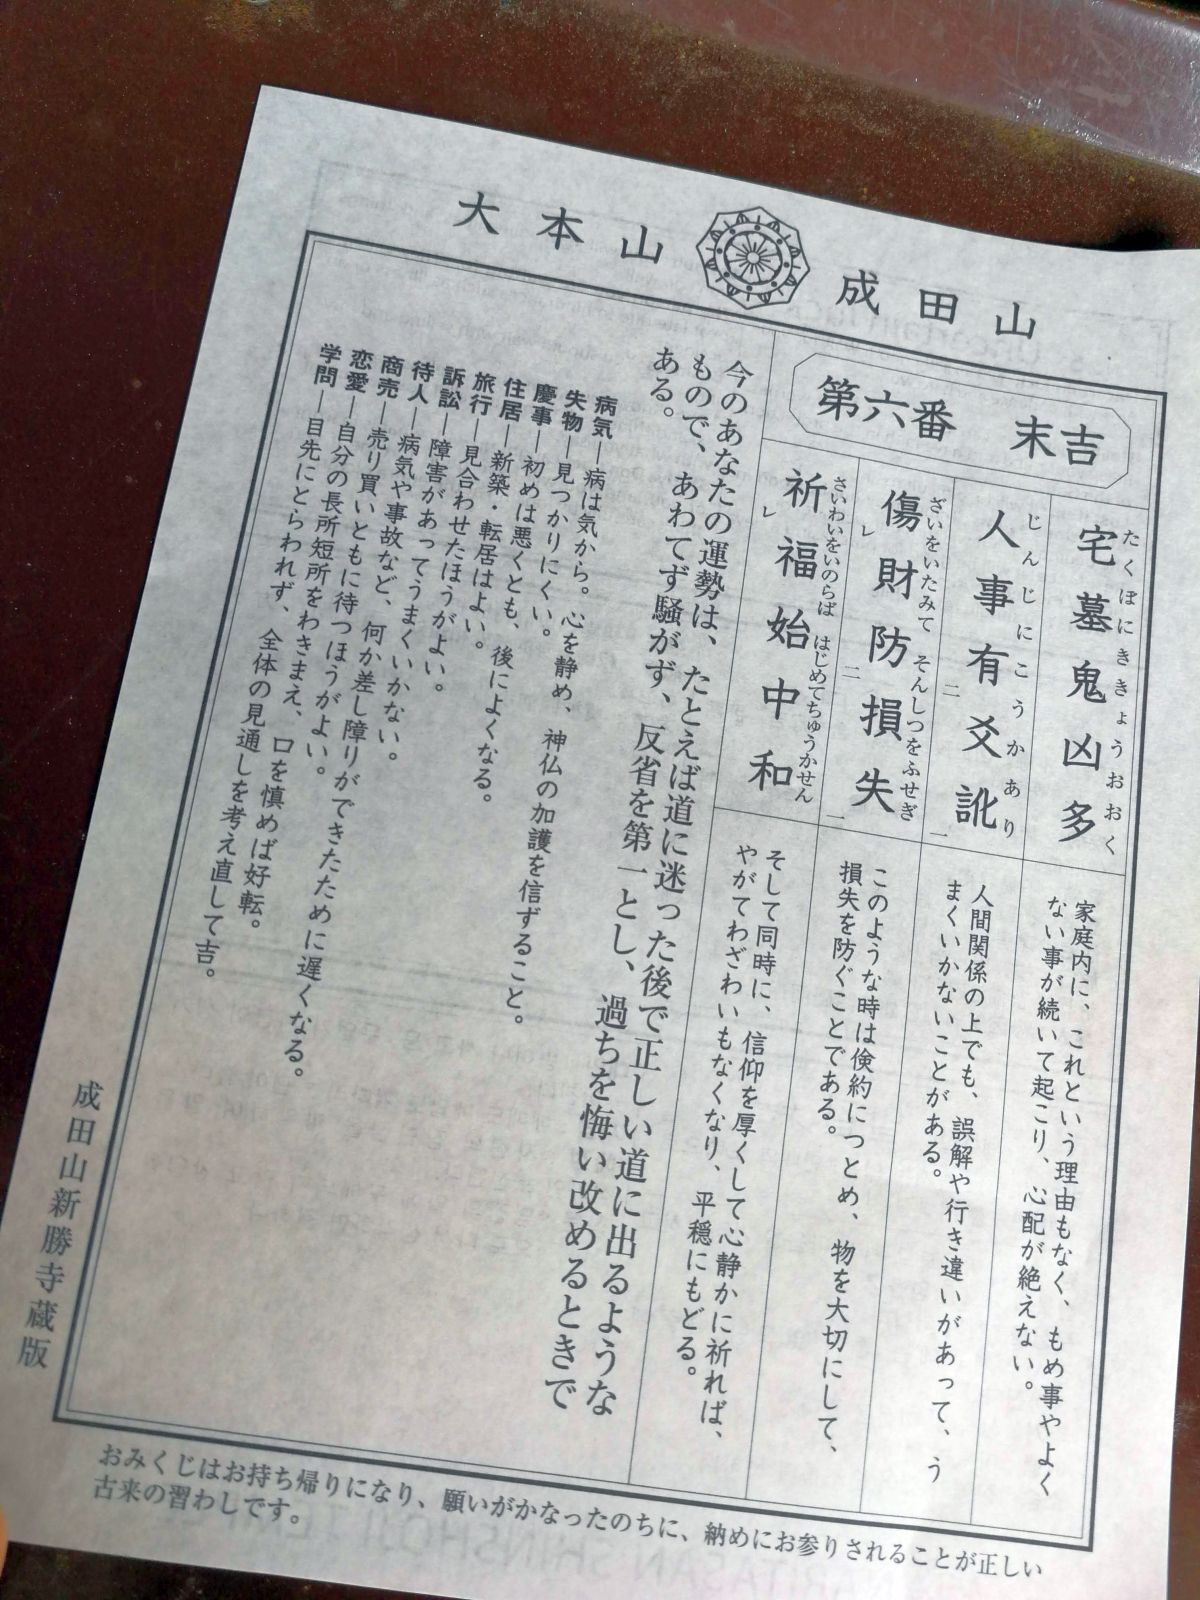 大本山 成田山
第六番 末吉
宅墓鬼凶多
たくぼにききょうおおく
家庭内に、これという理由もなく、もめ事やよく
ない事が続いて起こり、心配が絶えない。
人事有爻訛
じんじにこうかあり
二 一
人間関係の上でも、誤解や行き違いがあって、う
まくいかないことがある。
傷財防損失
ざいをいたみて そんしつをふせぎ
レ 二 一
このような時は倹約につとめ、物を大切にして、
損失を防ぐことである。
祈福始中和
さいわいをいのらば はじめてちゅうかせん
レ
そして同時に、信仰を厚くして心静かに祈れば、
やがてわざわいもなくなり、平穏にもどる。
今のあなたの運勢は、たとえば道に迷った後で正しい道に出るような
もので、あわてず騒がず、反省を第一とし、過ちを悔い改めるときで
ある。
病気―病は気から。心を静め、神仏の加護を信ずること。
失物―見つかりにくい。
慶事―初めは悪くとも、後によくなる。
住居―新築・転居はよい。
旅行―見合わせたほうがよい。
訴訟―障害があってうまくいかない。
待人―病気や事故など、何か差し障りができたために遅くなる。
商売―売り買いともに待つほうがよい。
恋愛―自分の長所短所をわきまえ、口を慎めば好転。
学問―目先にとらわれず、全体の見通しを考え直して吉。
成田山新勝寺蔵版
おみくじはお持ち帰りになり、願いがかなったのちに、納めにお参りされることが正しい
古来の習わしです。